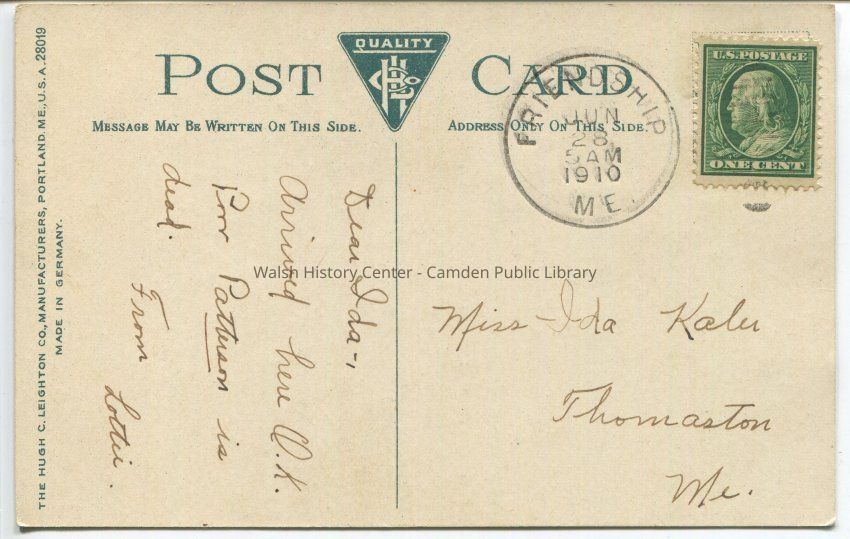 POST CARD
QUALITY
MESSAGE MAY BE WRITTEN ON THIS SIDE.
ADDRESS ONLY ON THIS SIDE.
FRIENDSHIP
JUN
28
5 AM
1910
ME.
U.S. POSTAGE
ONE CENT
Dear Ida-,
Arrived here O.K.
Poor Patterson is
dead.
From
Lottie.
Miss Ida Kaler
Thomaston
Me.
Walsh History Center - Camden Public Library
THE HUGH C. LEIGHTON CO., MANUFACTURERS, PORTLAND, ME., U.S.A. 28019
MADE IN GERMANY.